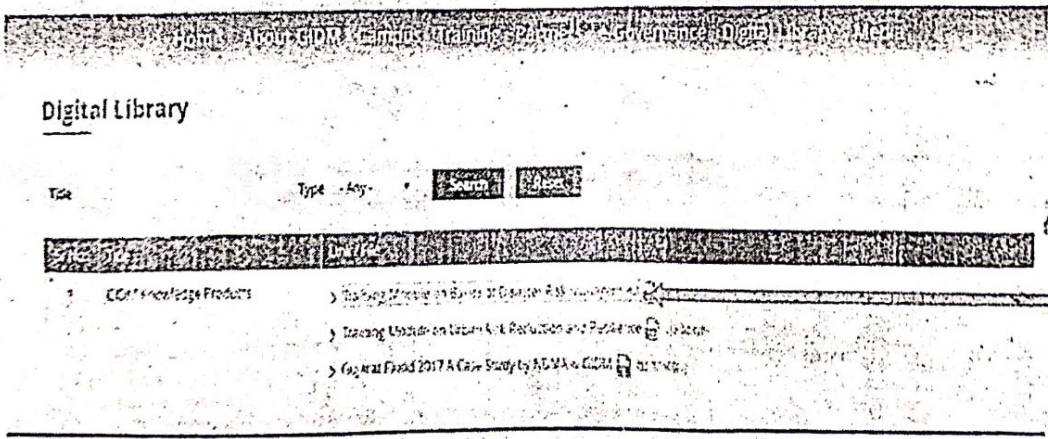 Home About GIDM Campus Training Partners Governance Digital Library Media
Digital Library
Title Type - Any - Search Reset
1 GIDM Knowledge Products > Training Module on Basics of Disaster Risk Management
> Training Module on Urban Risk Reduction and Resilience
> Gujarat Flood 2017 A Case Study by NDMA & GIDM